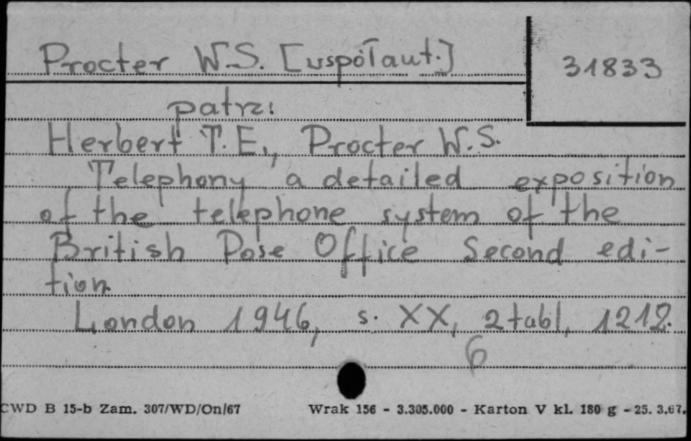 Procter W.S. [współaut.]
31833
patrz:
Herbert T.E., Procter W.S.
Telephony a detailed exposition
of the telephone system of the
British Pose Office Second edi-
tion
London 1946, s. XX, 2 tabl, 1212.
6
CWD B 15-b Zam. 307/WD/On/67 Wrak 156 - 3.305.000 - Karton V kl. 180 g - 25. 3.67.